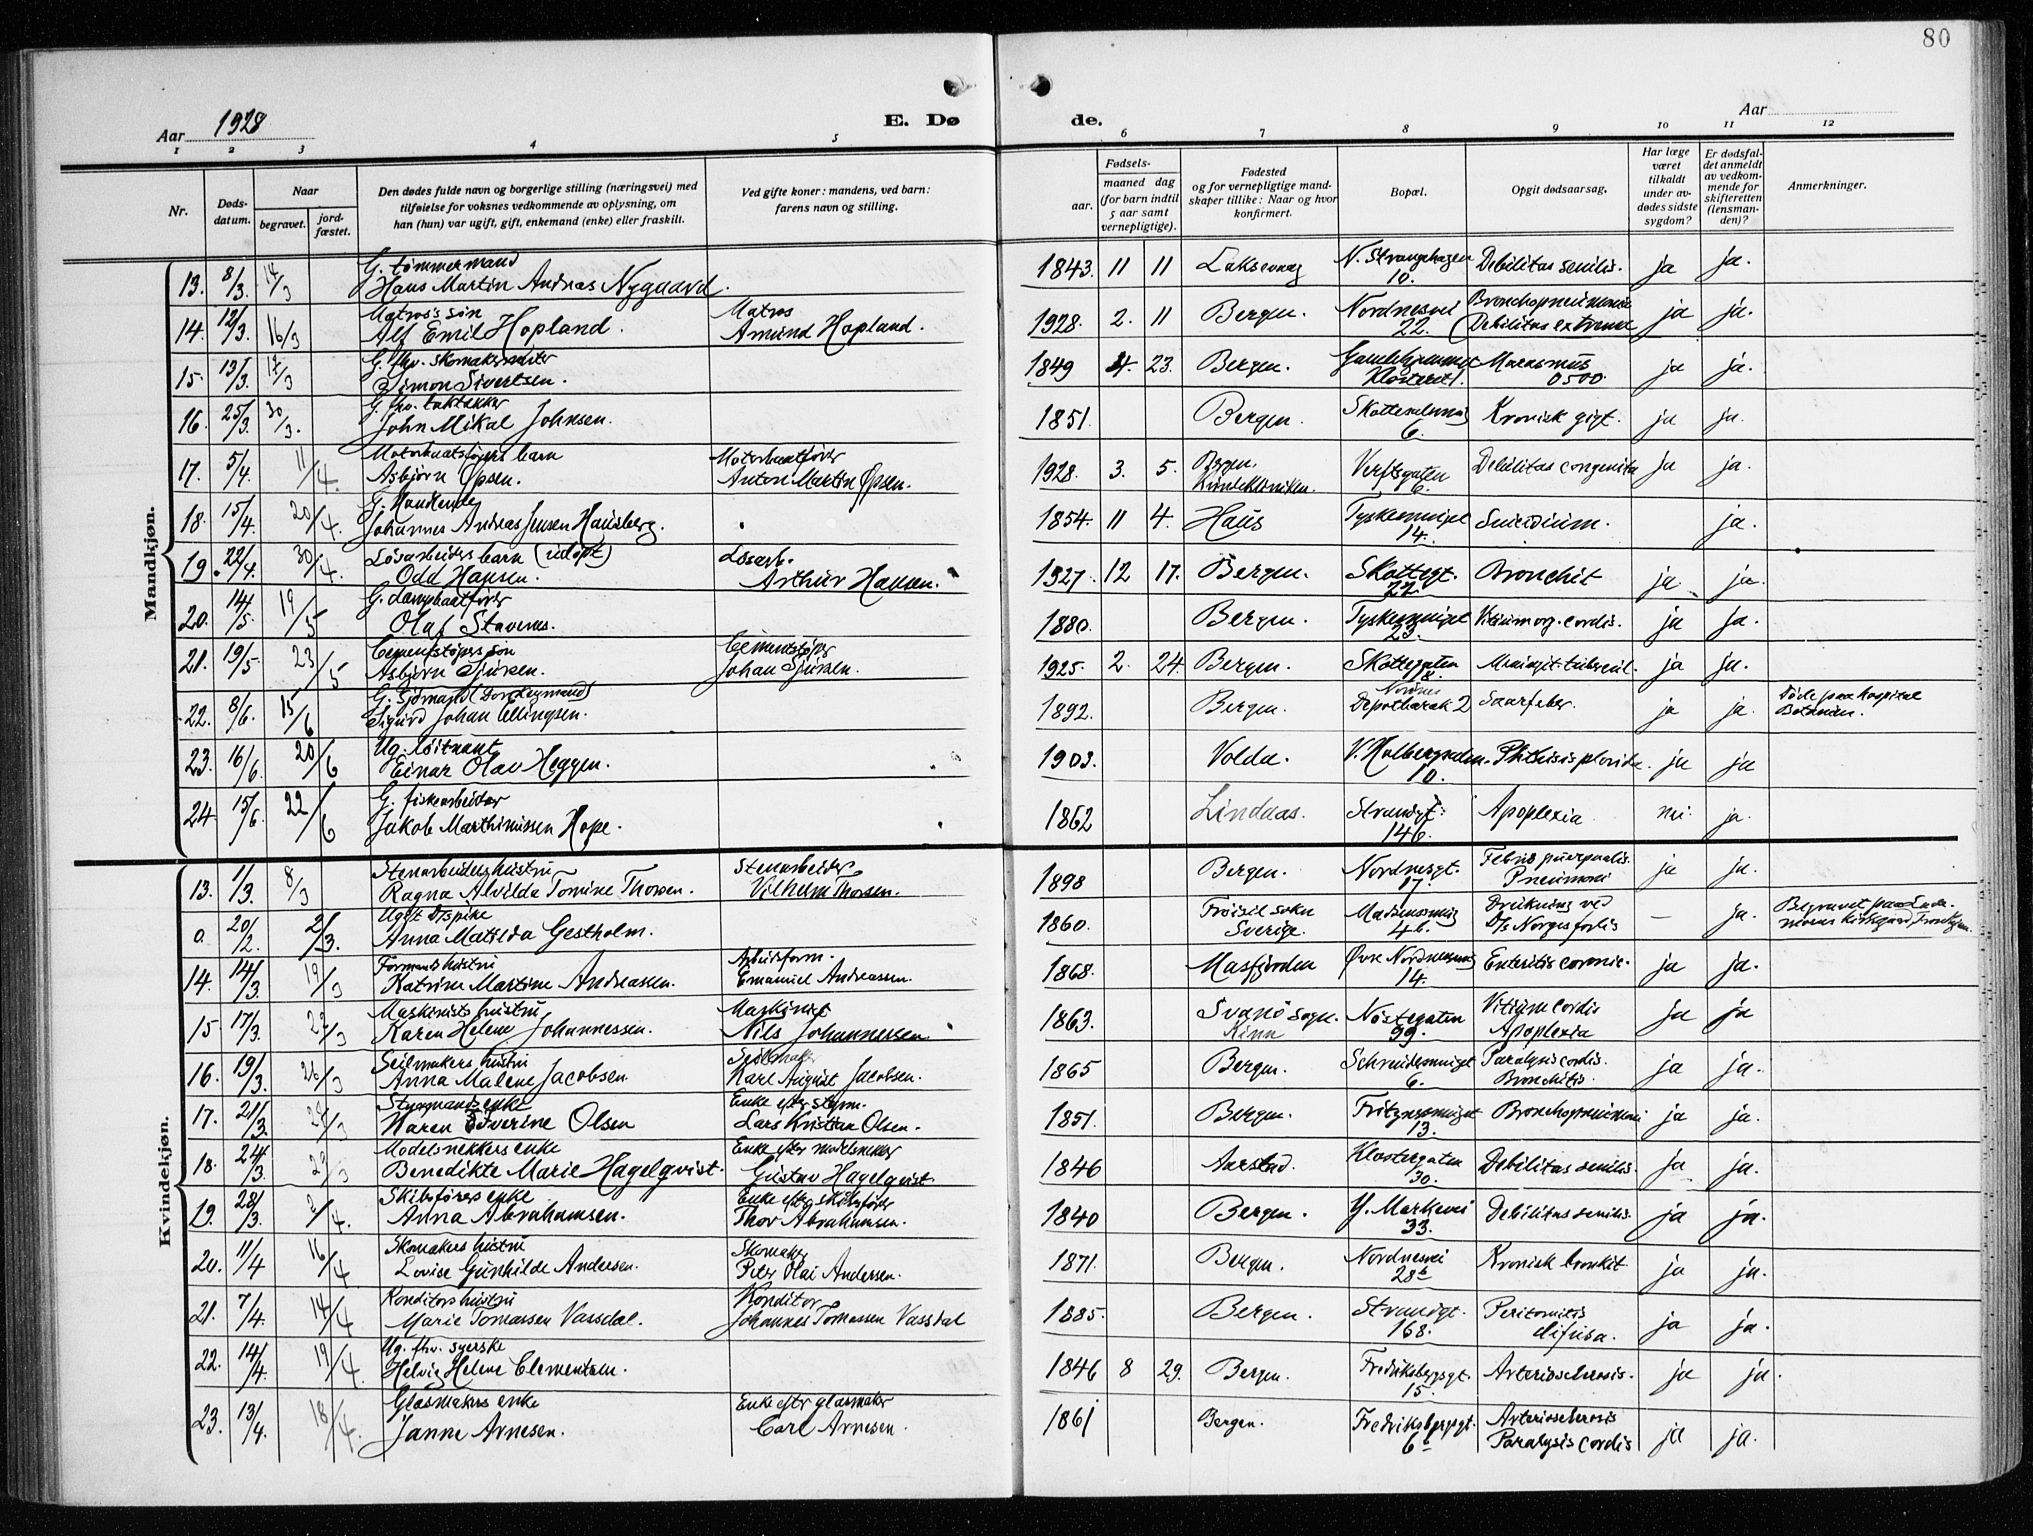 80
Aar 1928
E. Dø
de.
Aar
1 2 3 4 5 6 7 8 9 10 11 12
Nr.
Døds-
datum.
Naar
begravet.
jord-
fæstet.
Den dødes fulde navn og borgerlige stilling (næringsvei) med
tilføielse for voksnes vedkommende av oplysning, om
han (hun) var ugift, gift, enkemand (enke) eller fraskilt.
Ved gifte koner: mandens, ved barn:
farens navn og stilling.
Fødsels-
aar.
maaned dag
(for barn indtil
5 aar samt
vernepligtige).
Fødested
og for vernepligtige mand-
skaper tillike: Naar og hvor
konfirmert.
Bopæl.
Opgit dødsaarsag.
Har læge
været
tilkaldt
under av-
dødes sidste
sygdom?
Er dødsfal-
det anmeldt
av vedkom-
mende for
skifteretten
(lensman-
den)?
Anmerkninger.
Mandkjøn.
13. 8/3. 14/3 G. tømmermand
Hans Martin Andreas Nygaard. 1843. 11 11 Laksevaag N. Strangehagen 10. Debilitas senilis. ja ja.
14. 12/3. 16/3 Matros's søn
Alf Emil Hopland. Matros
Amund Hopland. 1928. 2. 11 Bergen. Nordnesvei 22. Bronchopneumonie
Debilitas extreme ja ja.
15. 13/3. 17/3 G. fhv. skomakermester
Simon Sivertsen. 1849 4. 23. Bergen. Klosteret 1. Marasmus ja ja.
16. 25/3. 30/3. G. fhv. taktekker
John Mikal Johnsen. 1851. Bergen. 6. Kronisk gigt. ja ja.
17. 5/4. 11/4. Motorbaatførers barn
Asbjørn Øpsen. Motorbaatfører
Anton Martin Øpsen. 1928. 3. 5. Bergen.
Kvindeklinikken. Verftsgaten 6. Debilitas congenita ja ja.
18. 15/4. 20/4. G. Handlende
Johannes Andreas Jensen Hausberg. 1854. 11 4. Haus Tyskesmuget 14. Suicidium. ja.
19. 22/4. 30/4. Løsarbeiders barn (udøpt)
Odd Hansen. Løsarb.
Arthur Hansen. 1927. 12 17. Bergen. Skottegt. 22. Bronchit ja ja.
20. 14/5. 19/5 G. Dampbaatfører
Olaf Stavenes. 1880. Bergen. Tyskesmuget 23. Vitium org. cordis. ja ja.
21. 19/5 23/5 Cementstøpers søn
Asbjørn Sjursen. Cementstøper
Johan Sjursen. 1925. 2. 24. Bergen. Skottegaten 8. Meningit. tubercul. ja ja.
22. 8/6. 15/6 G. Sjømand (Donkeymand)
Sigurd Johan Ellingsen. 1892. Bergen. Nordnes
Depotbarak 2 Saarfeber. ja ja. Døde paa hospital
Betanien.
23. 16/6. 20/6 Ug. løitnant
Einar Olav Heggen. 1903. Volda. V. Holbergsalm. 10. ja ja
24. 15/6. 22/6 G. fiskearbeider
Jakob Marthinussen Hope. 1862 Lindaas. Strandgt. 146. Apoplexia nei ja.
Kvindekjøn.
13. 1/3. 8/3 Stenarbeiders hustru
Ragna Alvilda Tomine Thorsen. Stenarbeider
Vilhelm Thorsen. 1898 Bergen. Nordnesgt. 17. Febris puerperalis.
Pneumoni ja ja.
0. 20/2. 2/3. Ugift
Anna Matilda Gestholm. 1860. Sverige. 46. Drukning ved
D/s Norges forlis — ja.
14. 14/3. 19/3 Formands hustru
Katrine Martine Andreassen. Arbeidsform.
Emanuel Andreassen. 1868. Masfjorden Øvre Nordnesvei 14. Enteritis cronic. ja ja.
15 17/3. 22/3 Maskinists hustru
Karen Helene Johannessen. Maskinist
Nils Johannessen. 1863. Svanø sogn.
Kinn Nøstegaten 99. Vitium cordis
Apoplexia ja ja
16. 19/3. 26/3 Seilmakers hustru
Anna Malene Jacobsen. Seilmaker
Karl August Jacobsen. 1865 Bergen. 6. Paralysis cordis.
Bronchitis. ja ja.
17. 21/3. Styrmands enke
Karen Severine Olsen Enke efter styrm.
Lars Kristian Olsen. 1851. Bergen. Fritznersmuget 13. Bronchopneumoni ja ja.
18. 24/3. Modelsnekkers enke
Benedikte Marie Hagelqvist. Enke efter modelsnekker
Gustav Hagelqvist. 1846 Aarstad. Klostergaten 30. Debilitas senilis. ja ja.
19. 28/3. 2/4. Skibsførers enke
Anna Abrahamsen. Enke efter skibsfører
Thor Abrahamsen. 1840 Bergen. Y. Markevei 33. Debilitas senilis. ja ja.
20. 11/4 16/4 Skomakers hustru
Lovise Gunhilde Andersen. Skomaker
Peter Olai Andersen. 1871. Bergen. Nordnesvei 28b Kronisk bronkit ja ja.
21. 7/4. 14/4 Konditors hustru
Marie Tomassen Vassdal. Konditor
Johannes Tomassen Vassdal 1885. Bergen. Strandgt. 168. Peritonitis
difusa. ja ja.
22. 14/4. 19/4. Ug. fhv. syerske
Helvig Helene Clementsen. 1846 8 29. Bergen. Fredriksbergsgt. 15. Arteriosclerosis. ja ja.
23. 13/4. 18/4. Glasmakers enke
Janne Arnesen. Enke eftr glasmaker
Carl Arnesen. 1861 Bergen. Fredriksbergsgt. 6b Arteriosclerosis
Paralysis cordis ja ja.